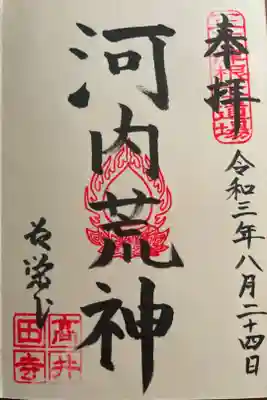 奉拝
令和三年八月二十四日
河内荒神
髙井
田寺